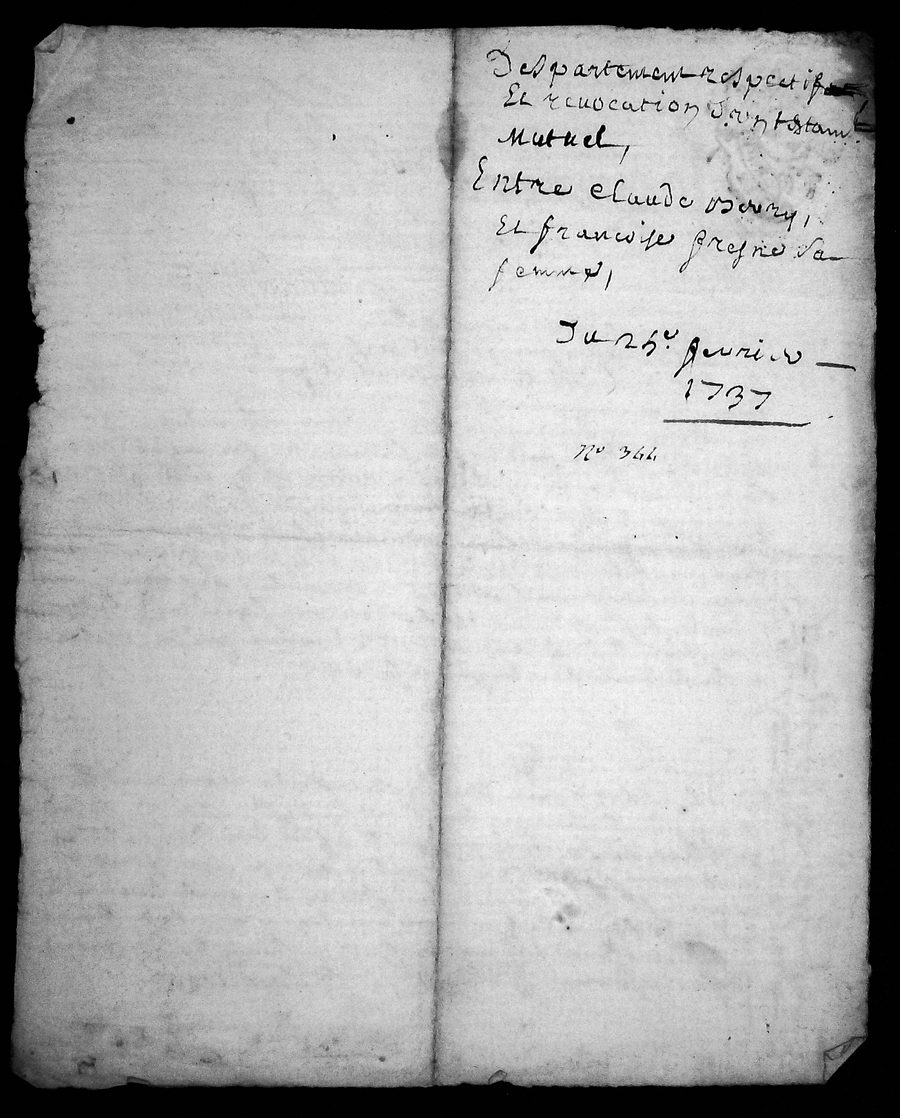 Despartement respectif
Et reuocation d'un testam
Mutuel,
Entre Claude Boury,
Et francoise fresne Sa
femme,
Du 25e. feurier
1737
No 344